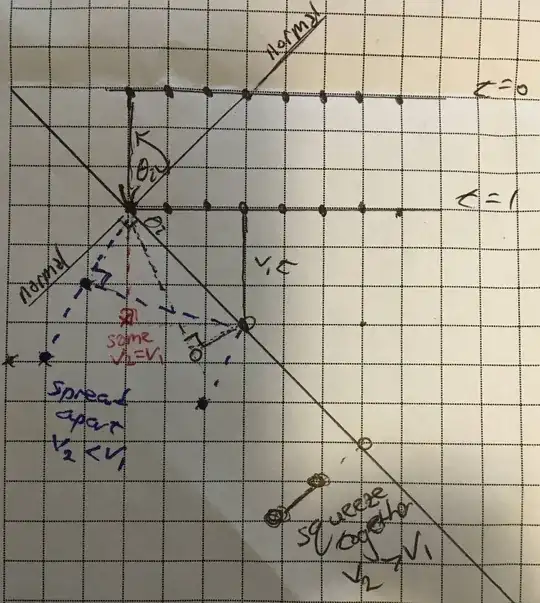 Normal
t=0
θ₁
t=1
θ₂
v₁t
Normal
same
v₂=v₁
spread
apart
v₂<v₁
squeeze
together
v₂>v₁